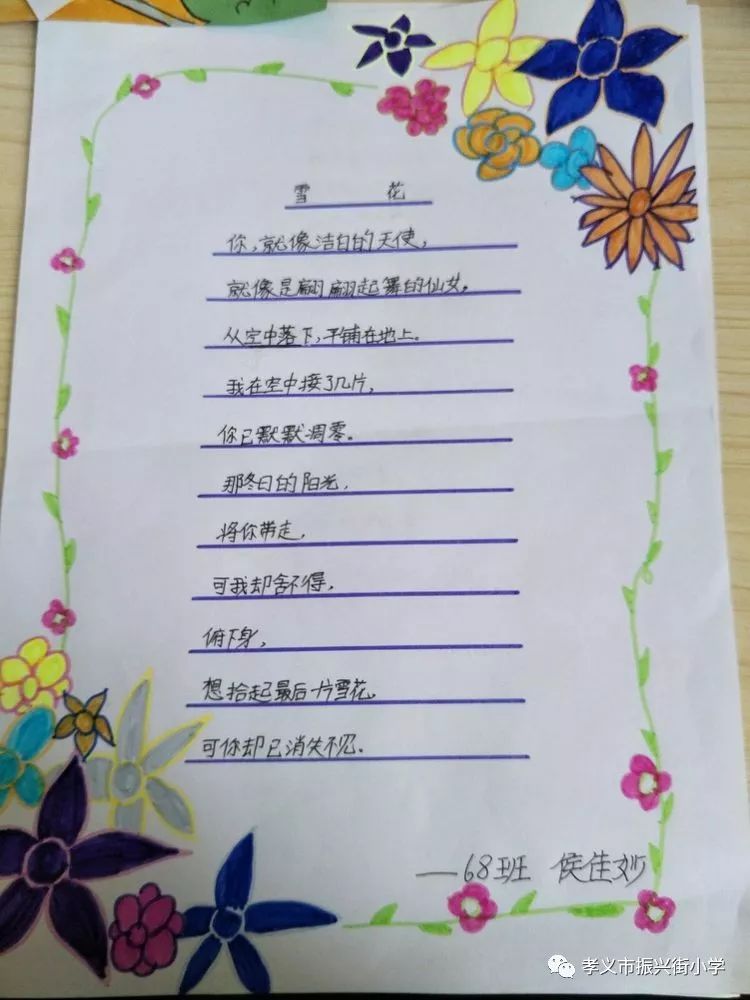 雪 花
你,就像洁白的天使,
就像是翩翩起舞的仙女。
从空中落下,平铺在地上。
我在空中接了几片,
你已默默凋零。
那冬日的阳光,
将你带走,
可我却舍不得,
俯下身,
想拾起最后一片雪花,
可你却已消失不见.
——68班 侯佳妙
孝义市振兴街小学